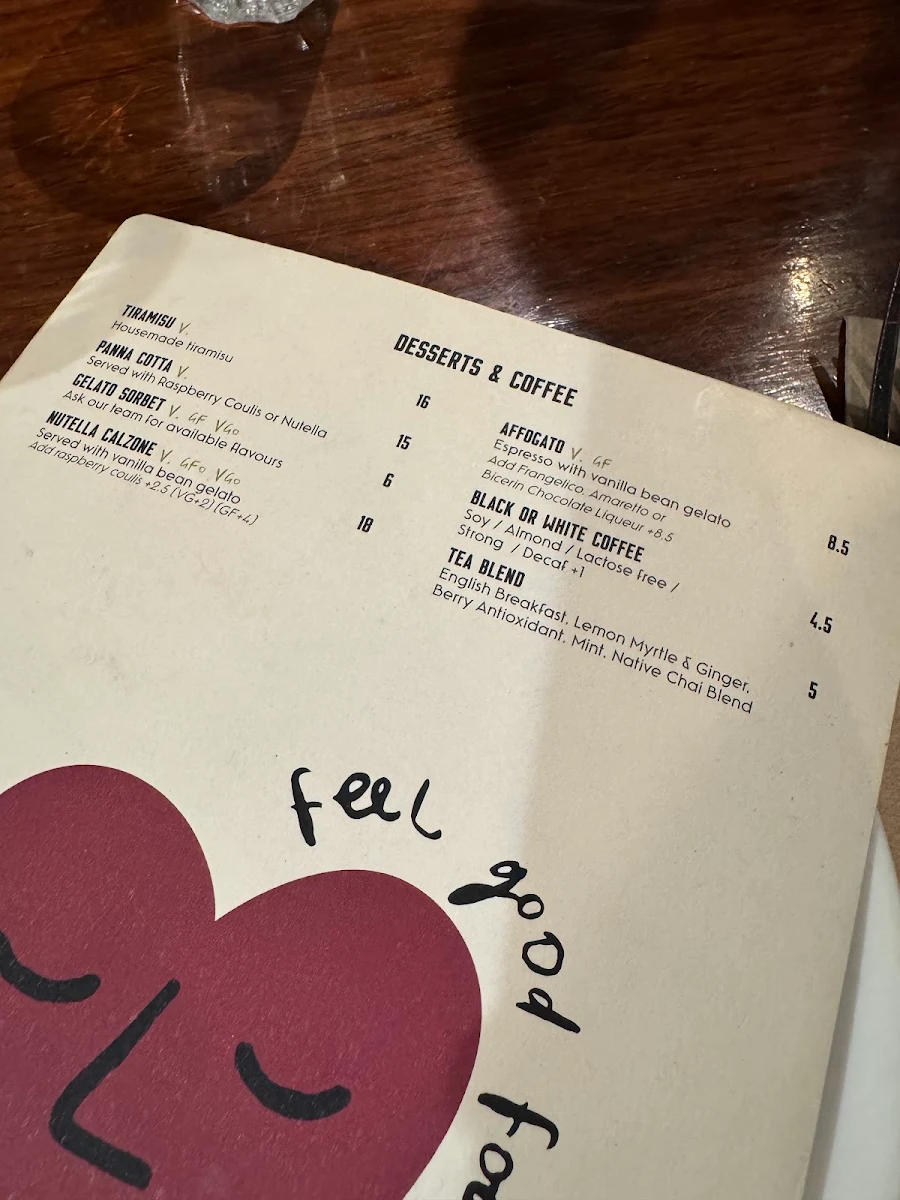 DESSERTS & COFFEE
TIRAMISU V. 16
Housemade tiramisu
PANNA COTTA V. 15
Served with Raspberry Coulis or Nutella
GELATO SORBET V. GF VGo 6
Ask our team for available flavours
NUTELLA CALZONE V. GFo VGo 18
Served with vanilla bean gelato
Add raspberry coulis +2.5 (VG+2) (GF+4)
AFFOGATO V. GF 8.5
Espresso with vanilla bean gelato
Add Frangelico, Amaretto or
Bicerin Chocolate Liqueur +8.5
BLACK OR WHITE COFFEE 4.5
Soy / Almond / Lactose free /
Strong / Decaf +1
TEA BLEND 5
English Breakfast, Lemon Myrtle & Ginger,
Berry Antioxidant, Mint, Native Chai Blend
feel good